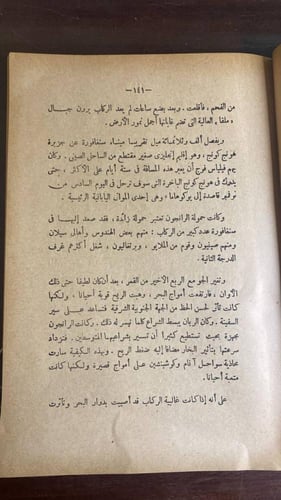 — ١٤١ —
من الفحم ، فأقلعت . وبعد بضع ساعات لم يعد الركاب يرون جبال
« ملقا » العالية التى تضم غاباتها أجمل نمور الأرض .
ويفصل ألف وثلاثمائة ميل تقريبا ميناء سنغافورة عن جزيرة
هونج كونج - وهو إقليم إنجليزى صغير مقتطع من الساحل الصينى . وكان
يهم فيلياس فوج أن يعبر هذه المسافة فى ستة أيام على الأكثر ، حتى
يلحق فى هونج كونج الباخرة التى سوف ترحل فى اليوم السادس من
نوفمبر قاصدة إلى يوكوهاما ، وهى إحدى الموانى اليابانية الرئيسية .
وكانت حمولة الرانجون تعتبر حمولة زائدة ، فقد صعد إليها فى
سنغافورة عدد كبير من الركاب : منهم بعض الهندوس وأهالى سيلان
ومنهم صينيون وقوم من الملايو ، وبرتغاليون ، شغل أكثرهم غرف
الدرجة الثانية .
وتغير الجو مع الربع الأخير من القمر ، بعد أن كان لطيفا حتى ذلك
الأوان ، فارتفعت أمواج البحر ، وهبت الريح قوية أحيانا ، ولكنها
كانت تأتى لحسن الحظ من الجهة الجنوبية الشرقية فتساعد على سير
السفينة . وكان الربان يبسط الشراع كلما تيسر له ذلك . وكانت الرانجون
مجهزة بحيث تستطيع كثيرا أن تسير بشراعيها المتوسطين ، فتزداد
سرعتها بتأثير البخار مضافا إليه ضغط الريح . وبهذه الكيفية سارت
محاذية سواحل آنام وكوشينشين على أمواج قصيرة ولكنها كانت
متعبة أحيانا .
على أنه إذا كانت غالبية الركاب قد أصيبت بدوار البحر وتأثرت